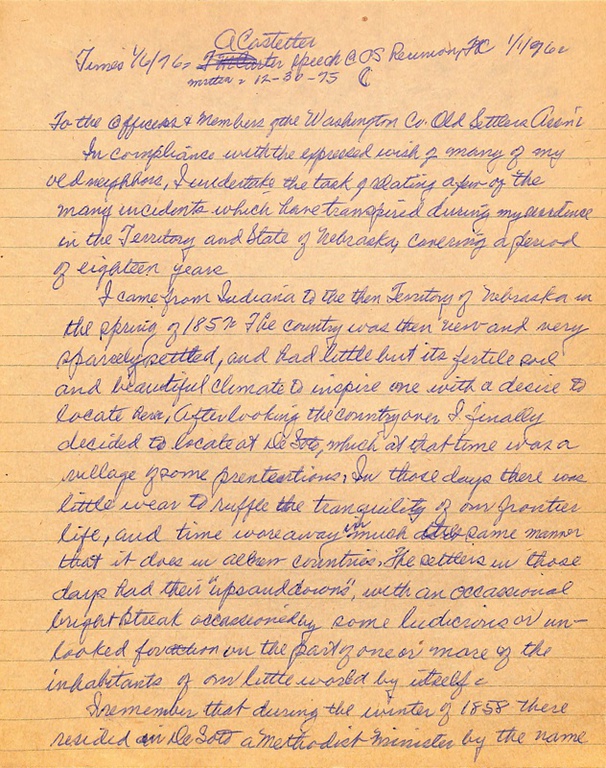 A Castetter
Times 1/6/76 - Speech @ OS Reunion, 1/1/76
written - 12-30-75
To the Officers & Members of the Washington Co. Old Settlers Ass'n
In compliance with the expressed wish of many of my
old neighbors, I undertake the task of relating a few of the
many incidents which have transpired during my residence
in the Territory and State of Nebraska, covering a period
of eighteen years
I came from Indiana to the then Territory of Nebraska in
the spring of 1857. The country was then new and very
sparcely settled, and had little but its fertile soil
and beautiful climate to inspire one with a desire to
locate here, After looking the country over I finally
decided to locate at De Soto, which at that time was a
village of some prententions. In those days there was
little wear to ruffle the tranquility of our frontier
life, and time wore away in much the same manner
that it does in all new countries. The settlers in those
days had their "ups and downs", with an occassional
bright streak occassioned by some ludicrous or un-
looked for action on the part of one or more of the
inhabitants of our little world by itself.
I remember that during the winter of 1858 there
resided in De Soto a Methodist Minister by the name